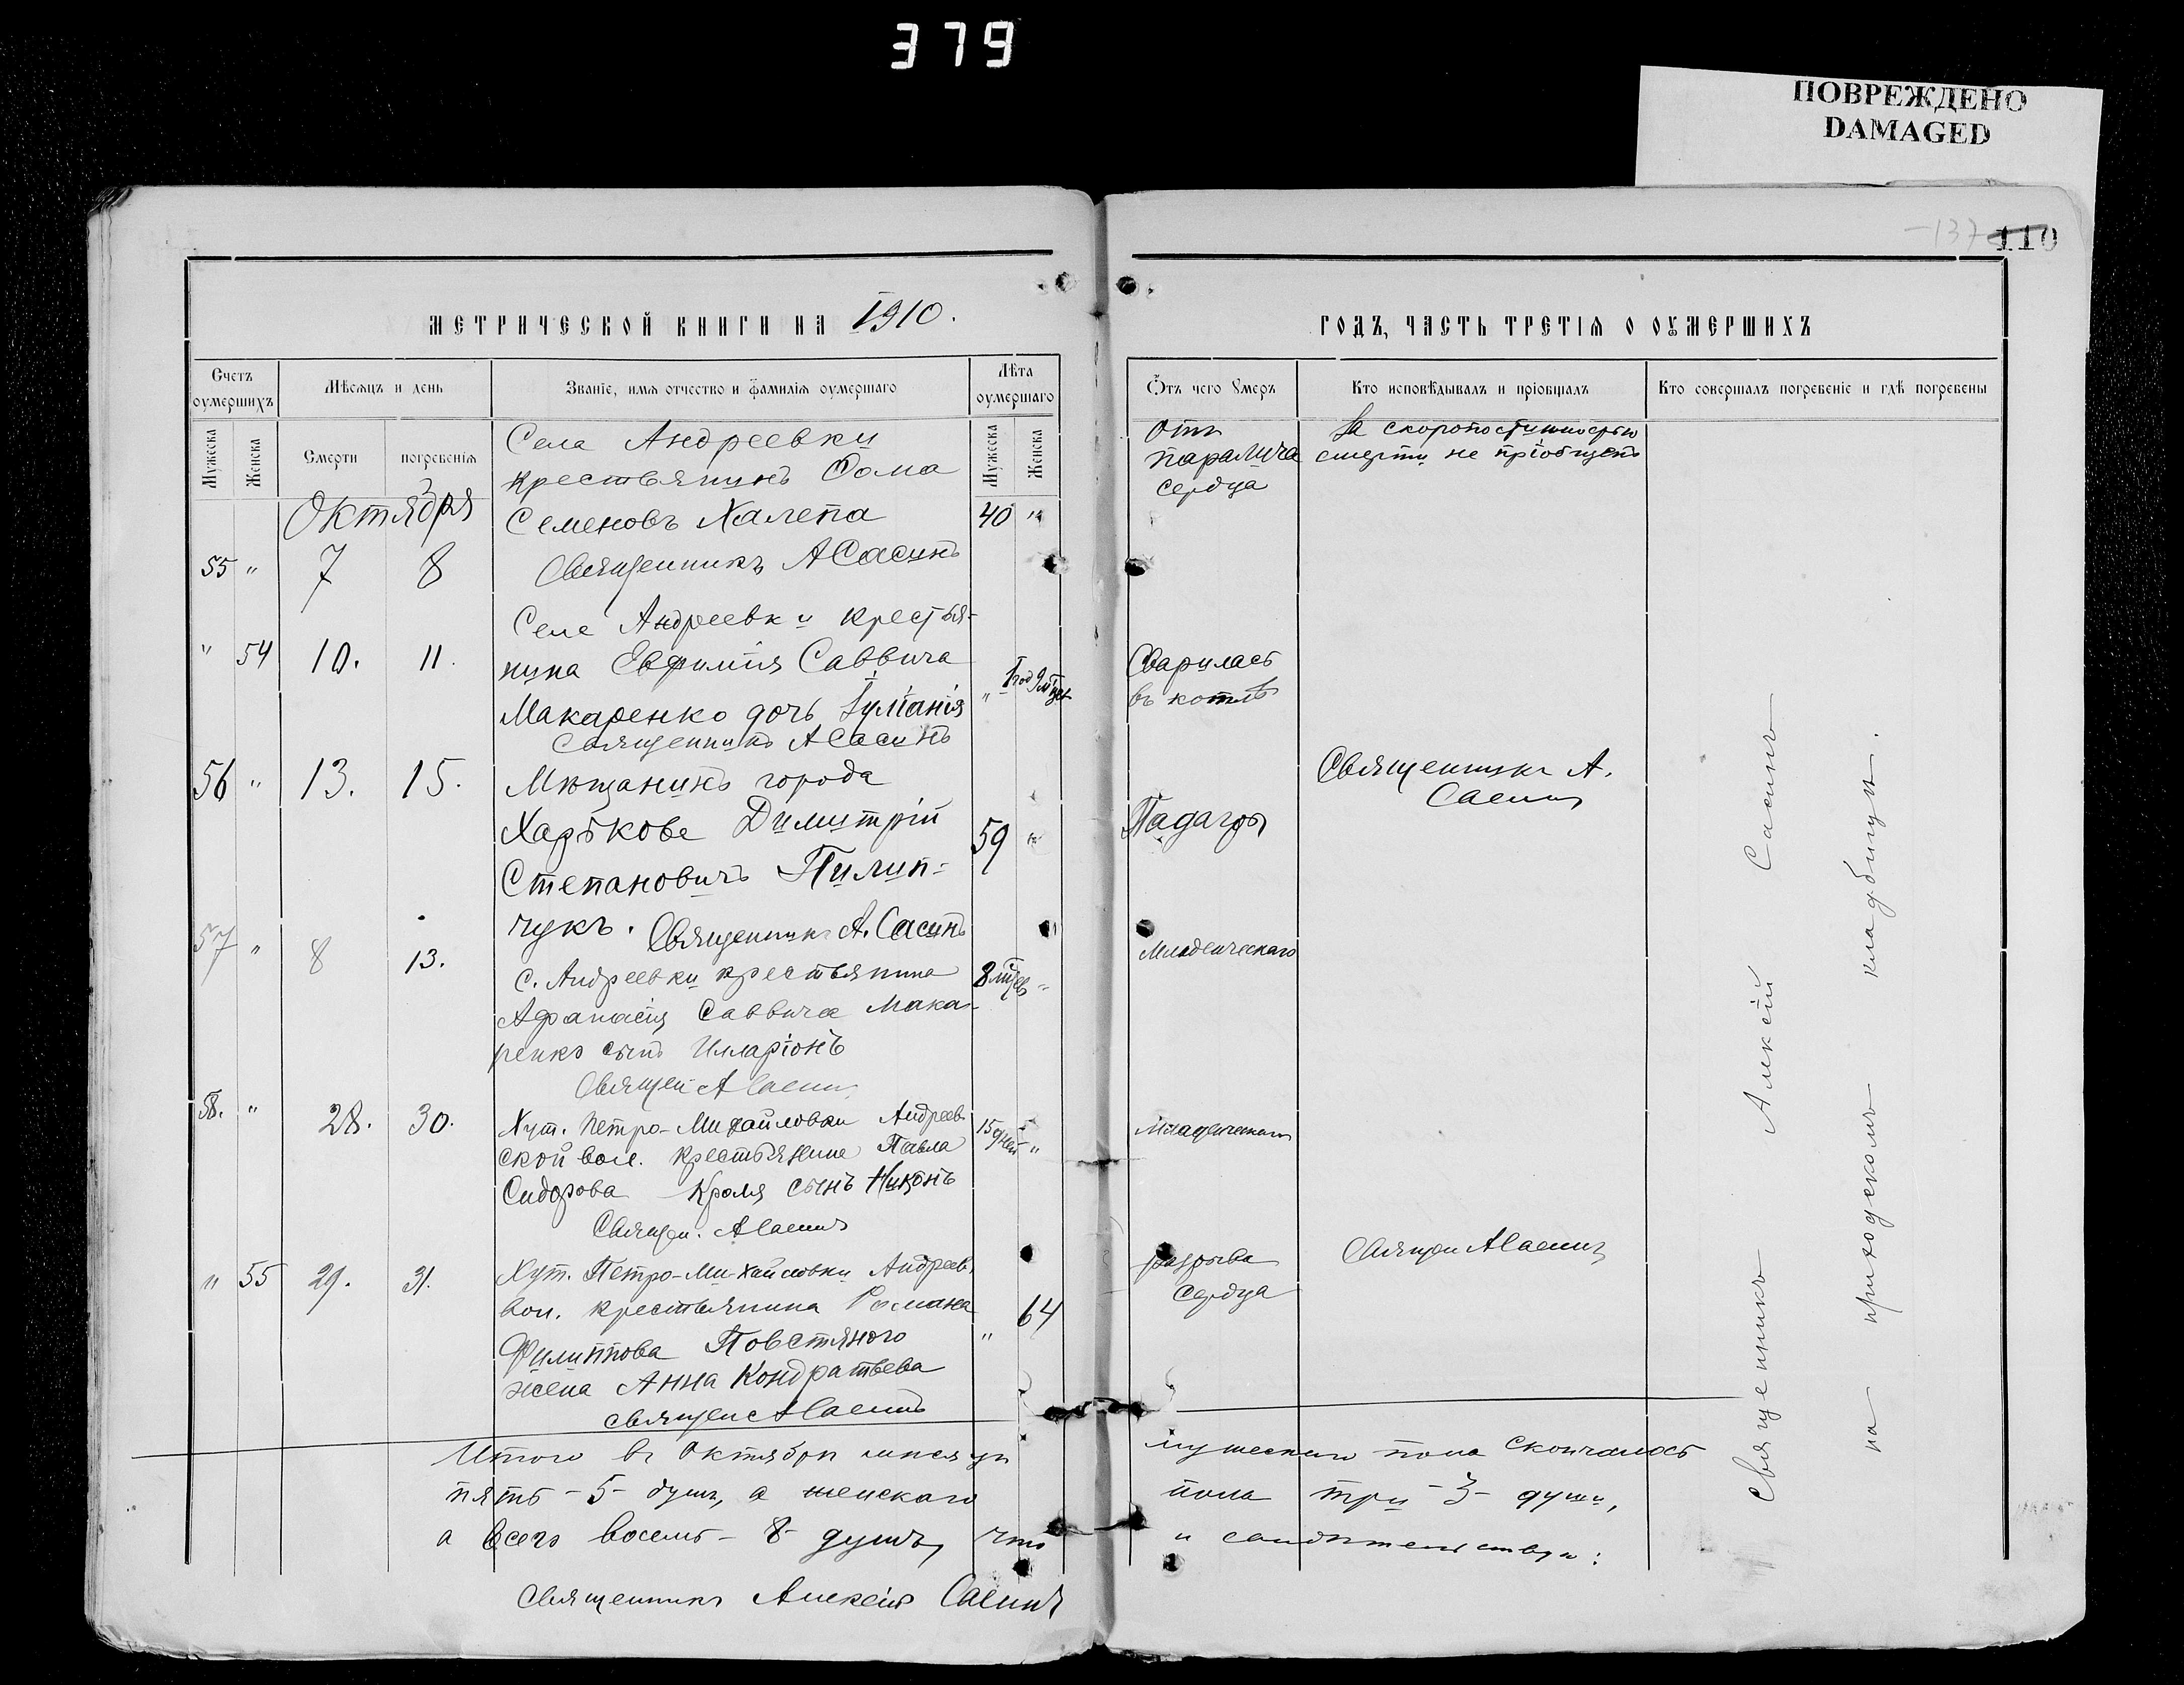 379
ПОВРЕЖДЕНО
DAMAGED
137 110
МЕТРИЧЕСКОЙ КНИГИ НА 1910.
Счетъ оумершихъ
Мѣсяцъ и день
Званіе, имя отчество и фамилія оумершаго
Лѣта оумершаго
Мужеска
Женска
Смерти
погребенія
Мужеска
Женска
Октября
55 " 7 8
Села Андреевки
крестьянинъ Фома
Семеновъ Халепа 40 "
Священникъ А Сасинъ
" 54 10. 11.
Села Андреевки крестья-
нина Евфимія Саввича
Макаренко дочь Іуліанія " 1 год 9 мѣсяц
Священникъ А Сасинъ
56 " 13. 15.
Мѣщанинъ города
Харькова Димитрій
Степановичъ Пилип- 59 "
чукъ. Священникъ А. Сасинъ
57 " 8 13.
с. Андреевки крестьянина
Афанасія Саввича Мака- 8 мѣсяцев "
ренко сынъ Илларіонъ
Священ А Сасинъ
58. " 28. 30.
Хут. Петро-Михайловки Андреев
ской вол. крестьянина Павла 15 дней "
Сидорова Кромя сынъ Никонъ
Священ. А Сасинъ
" 55 29. 31.
Хут. Петро-Михайловки Андреев.
вол. крестьянина Романа " 64
Филиппова Повстяного
жена Анна Кондратьева
священ А Сасинъ
Итого въ Октябрѣ мѣсяцѣ
пять - 5 - душъ, а женскаго
а всего восемь - 8 - душъ, что
Священникъ Алексій Сасинъ
ГОДЪ, ЧАСТЬ ТРЕТІЯ О ОУМЕРШИХЪ
Ѿтъ чего оумеръ
Кто исповѣдывалъ и пріобщалъ
Кто совершалъ погребеніе и гдѣ погребены
Отъ
паралича
сердца
За скоропостижностью
смерти не пріобщенъ
Сварилась
въ котлѣ
Священникъ А.
Сасинъ
Падагры
Младенческаго
Младенческаго
разрыва
сердца
Священ А Сасинъ
мужескаго пола скончалось
пола три - 3 - души,
и свидѣтельствую:
Священникъ Алексій Сасинъ
на приходскомъ кладбищѣ.